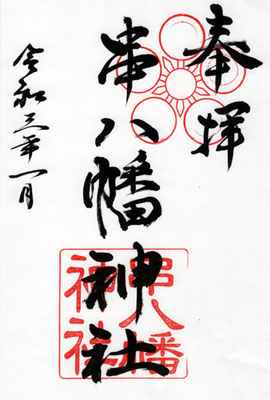 奉拝
串八幡神社
令和三年一月
串八幡
神社